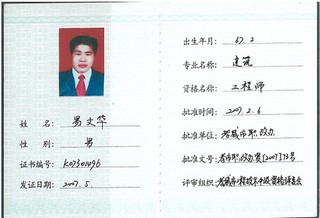 姓 名： 男文华
性 别： 男
证书编号： K07301096
发证日期： 2007.5.
出生年月： 67.2
专业名称： 建筑
资格名称： 工程师
批准时间： 2007.2.6
批准单位： 市职改办
批准文号： 市职改办资[2007]73号
评审组织： 工程技术中级资格评委会